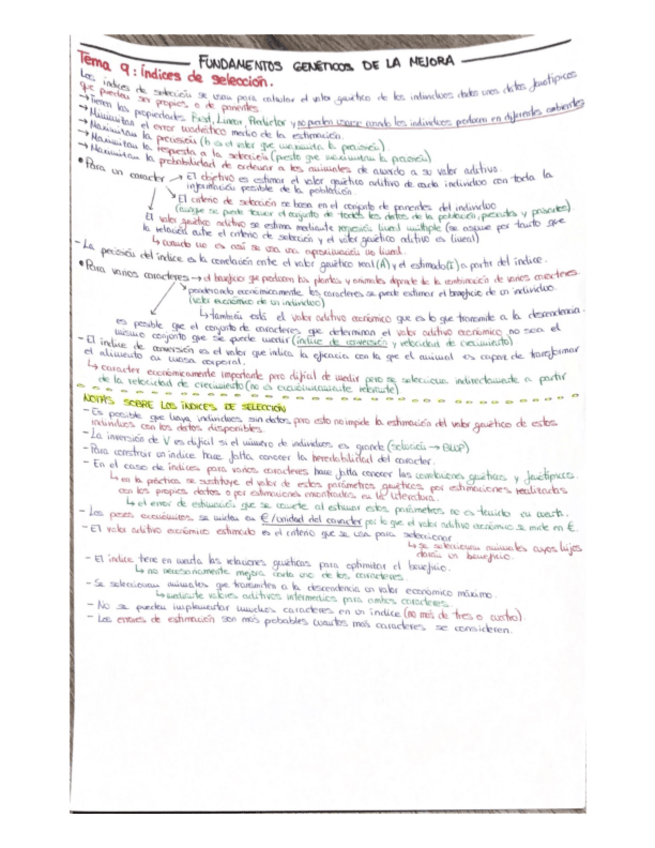 FUNDAMENTOS GENÉTICOS DE LA MEJORA
Tema 9: Índices de selección.
Los índices de selección se usan para calcular el valor genético de los individuos dados unos datos fenotípicos
que pueden ser propios o de parientes.
→ Tienen las propiedades Best, Linear, Predictor y se pueden usar cuando los individuos producen en diferentes ambientes
→ Minimizan el error cuadrático medio de la estimación.
→ Maximizan la precisión (h es el valor que maximiza la precisión)
→ Maximizan la respuesta a la selección (puesto que maximizan la precisión)
→ Maximizan la probabilidad de ordenar a los animales de acuerdo a su valor aditivo.
• Para un caracter → El objetivo es estimar el valor genético aditivo de cada individuo con toda la
información posible de la población.
El criterio de selección se basa en el conjunto de parientes del individuo
(aunque se puede tener el conjunto de todos los datos de la población, pasados y presentes)
El valor genético aditivo se estima mediante regresión lineal múltiple (se asume por tanto que
la relación entre el criterio de selección y el valor genético aditivo es lineal)
↳ cuando no es así se usa una aproximación no lineal.
- La precisión del índice es la correlación entre el valor genético real (A) y el estimado (I) a partir del índice.
• Para varios caracteres → el beneficio que producen las plantas y animales depende de la combinación de varios caracteres.
ponderando económicamente los caracteres se puede estimar el beneficio de un individuo.
(valor económico de un individuo)
↳ también está el valor aditivo económico que es lo que transmite a la descendencia.
es posible que el conjunto de caracteres que determinan el valor aditivo económico no sea el
mismo conjunto que se puede medir (índice de conversión y velocidad de crecimiento)
- El índice de conversión es el valor que indica la eficiencia con la que el animal es capaz de transformar
el alimento en masa corporal.
↳ caracter económicamente importante pero difícil de medir pero se selecciona indirectamente a partir
de la velocidad de crecimiento (no es económicamente relevante)
NOTAS SOBRE LOS ÍNDICES DE SELECCIÓN
- Es posible que haya individuos sin datos pero esto no impide la estimación del valor genético de estos
individuos con los datos disponibles.
- La inversión de V es difícil si el número de individuos es grande (solución → BLUP)
- Para construir un índice hace falta conocer la heredabilidad del caracter.
- En el caso de índices para varios caracteres hace falta conocer las correlaciones genéticas y fenotípicas.
↳ en la práctica se sustituye el valor de estos parámetros genéticos por estimaciones realizadas
con los propios datos o por estimaciones encontradas en la literatura.
↳ el error de estimación que se comete al estimar estos parámetros no es tenido en cuenta.
- Los pesos económicos se miden en €/unidad del caracter por lo que el valor aditivo económico se mide en €.
- El valor aditivo económico estimado es el criterio que se usa para seleccionar
↳ se seleccionan animales cuyos hijos
darán un beneficio.
- El índice tiene en cuenta las relaciones genéticas para optimizar el beneficio.
↳ no necesariamente mejora cada uno de los caracteres.
- Se seleccionan animales que transmiten a la descendencia un valor económico máximo.
↳ mediante valores aditivos intermedios para ambos caracteres.
- No se pueden implementar muchos caracteres en un índice (no más de tres o cuatro).
- Los errores de estimación son más probables cuantos más caracteres se consideren.